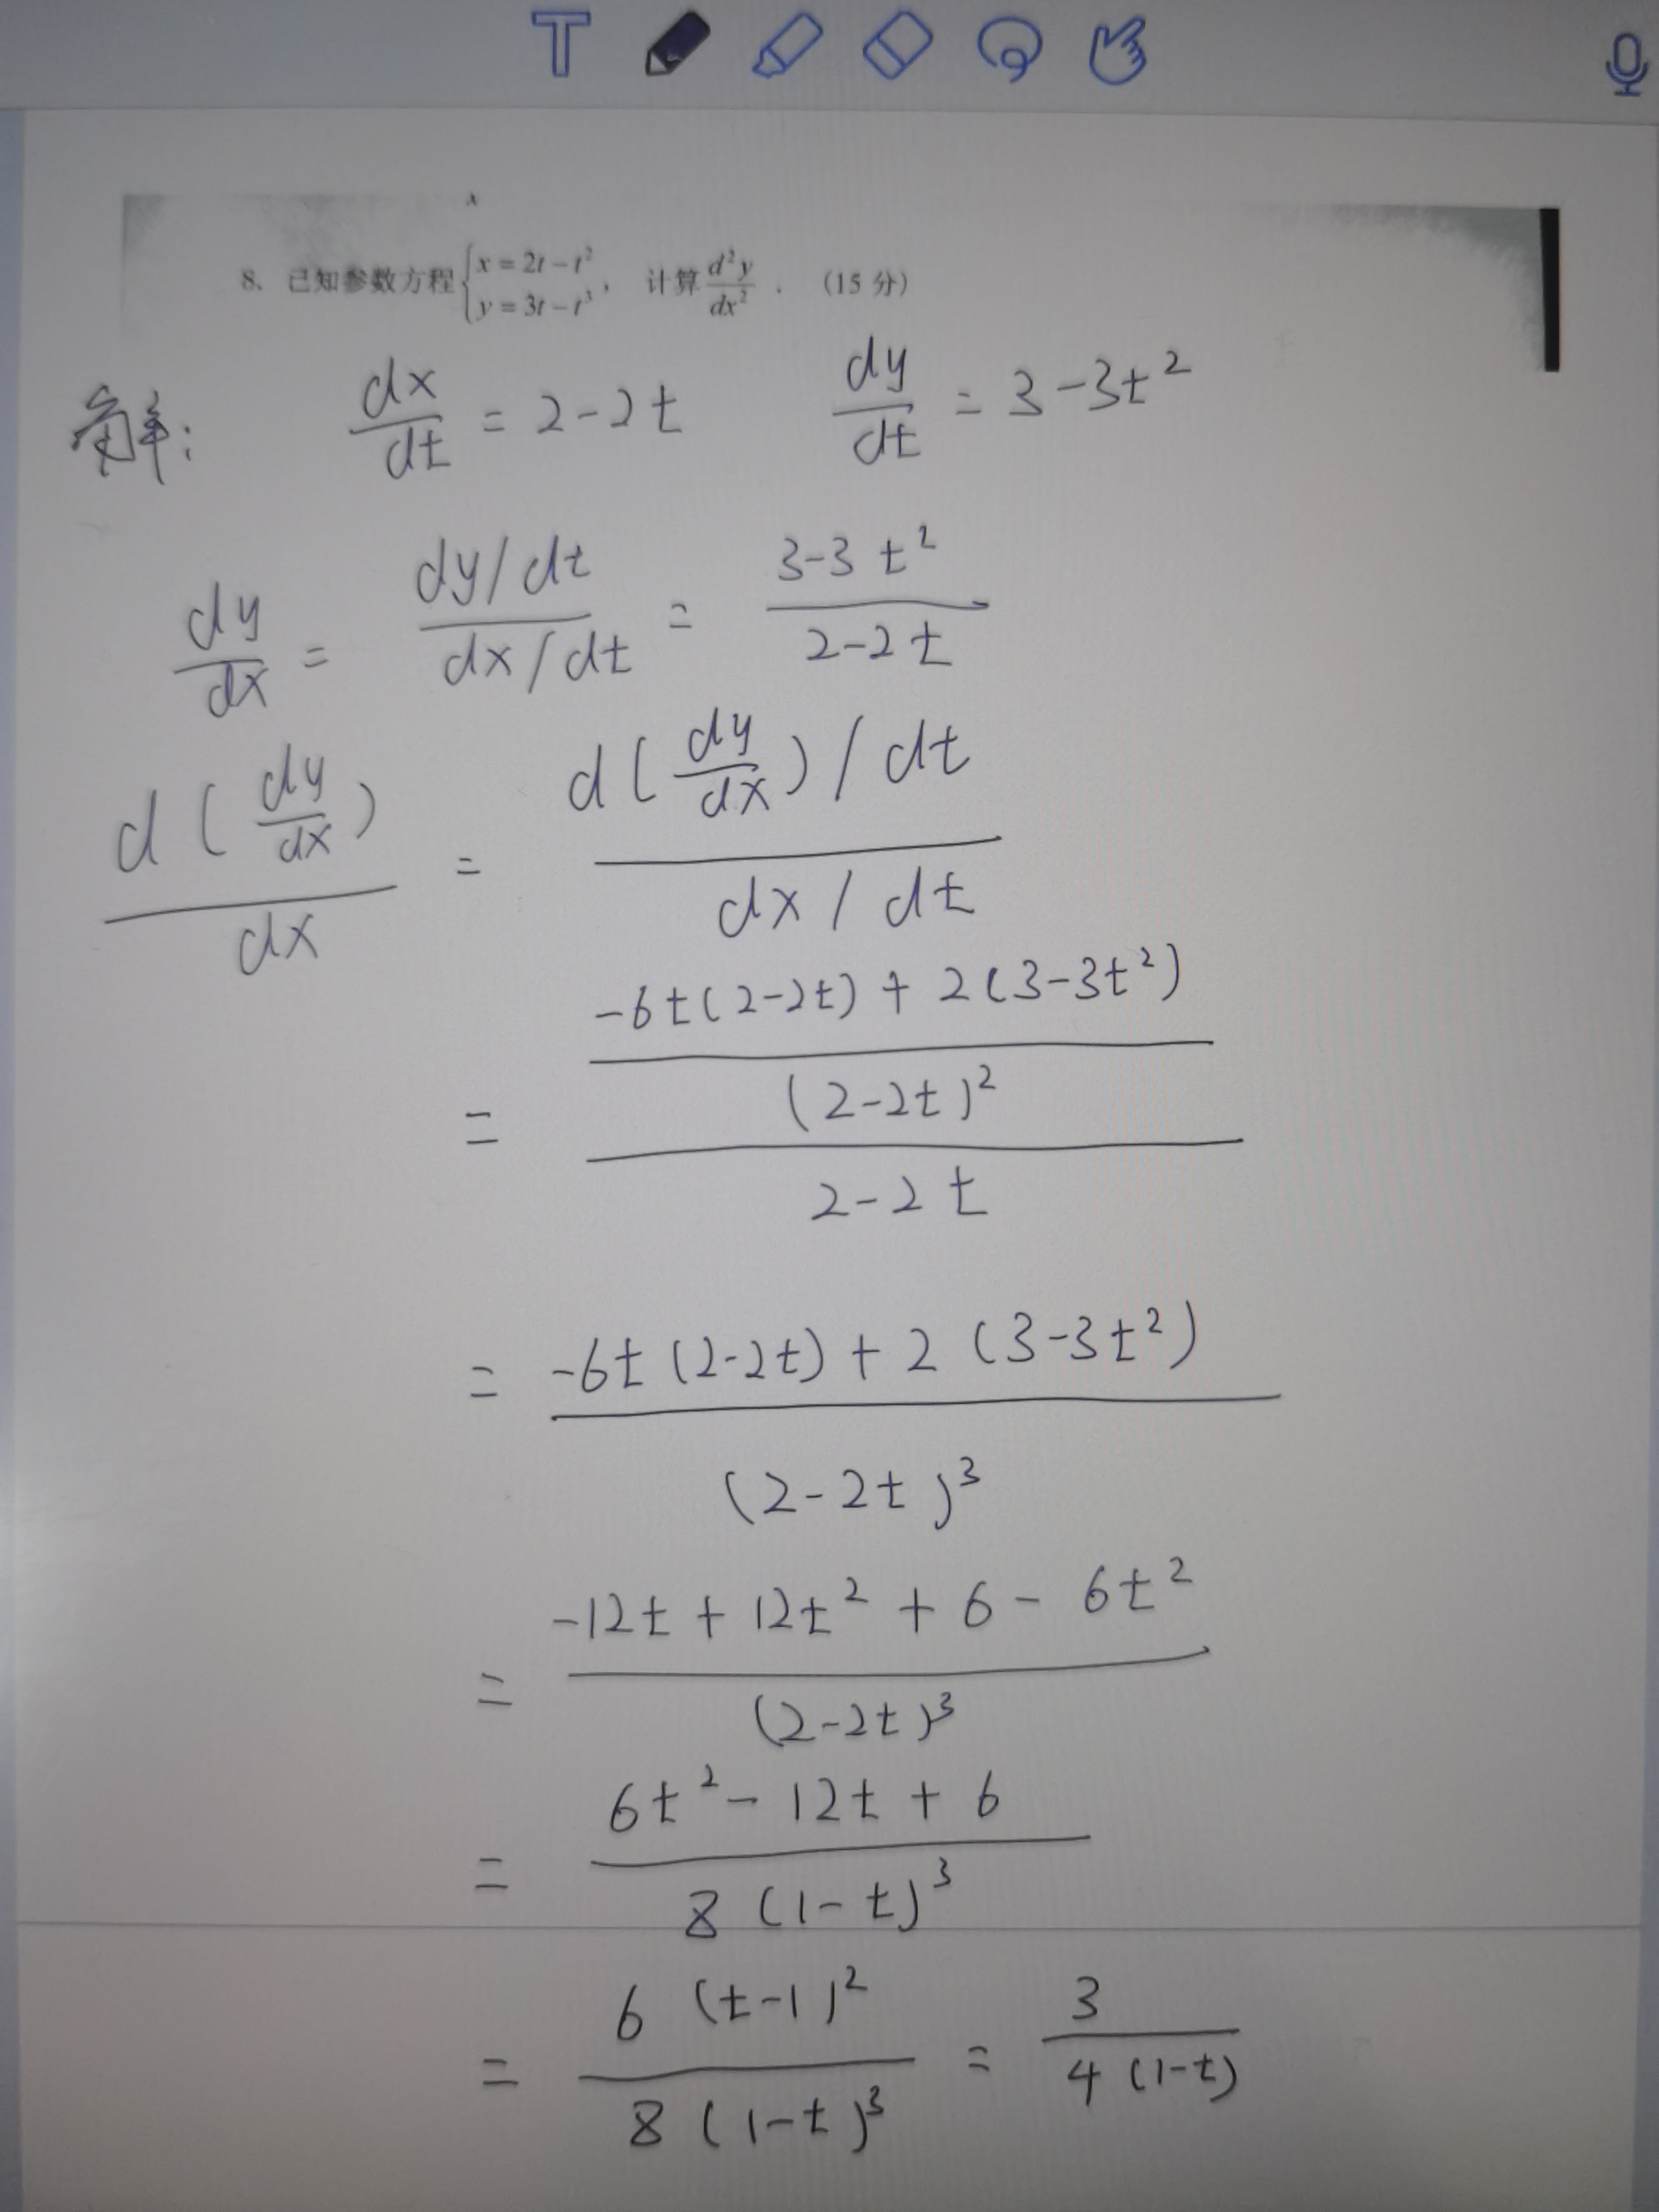 8、已知参数方程{x = 2t − t², y = 3t − t³, 计算 d²y/dx² . (15 分)
解: dx/dt = 2-2t dy/dt = 3-3t²
dy/dx = (dy/dt)/(dx/dt) = (3-3t²)/(2-2t)
d(dy/dx)/dx = (d(dy/dx)/dt)/(dx/dt)
= ((-6t(2-2t)+2(3-3t²))/(2-2t)²)/(2-2t)
= (-6t(2-2t)+2(3-3t²))/(2-2t)³
= (-12t+12t²+6-6t²)/(2-2t)³
= (6t²-12t+6)/(8(1-t)³)
= (6(t-1)²)/(8(1-t)³) = 3/(4(1-t))